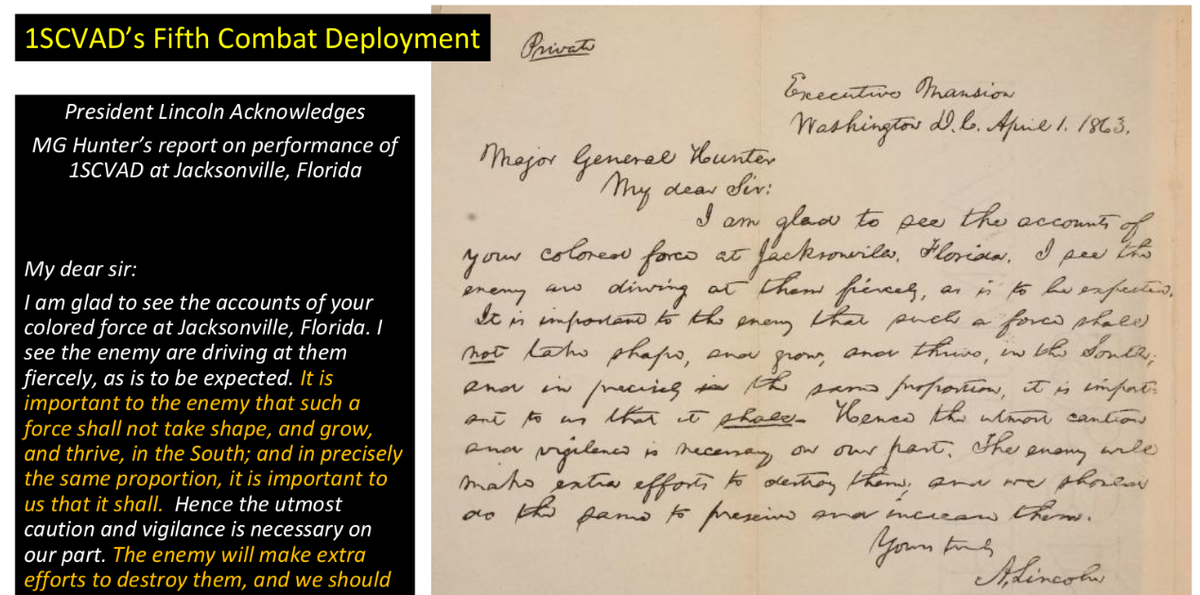 1SCVAD’s Fifth Combat Deployment
President Lincoln Acknowledges
MG Hunter’s report on performance of
1SCVAD at Jacksonville, Florida
My dear sir:
I am glad to see the accounts of your
colored force at Jacksonville, Florida. I
see the enemy are driving at them
fiercely, as is to be expected. It is
important to the enemy that such a
force shall not take shape, and grow,
and thrive, in the South; and in precisely
the same proportion, it is important to
us that it shall. Hence the utmost
caution and vigilance is necessary on
our part. The enemy will make extra
efforts to destroy them, and we should
Private
Executive Mansion
Washington D.C. April 1. 1863.
Major General Hunter
My dear Sir:
I am glad to see the accounts of
your colored force at Jacksonville, Florida. I see the
enemy are driving at them fiercely, as is to be expected.
It is important to the enemy that such a force shall
not take shape, and grow, and thrive, in the South;
and in precisely the same proportion, it is import-
ant to us that it shall. Hence the utmost caution
and vigilance is necessary on our part. The enemy will
make extra efforts to destroy them; and we should
do the same to preserve and increase them.
Yours truly
A. Lincoln